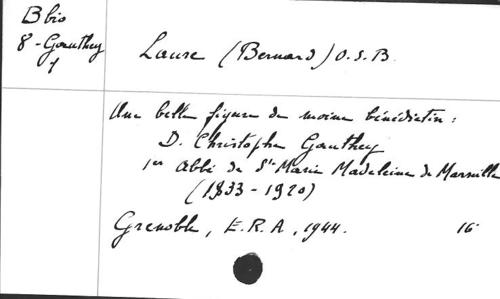 B bio
8 - Gauthey
1
Laure (Bernard) O.S.B.
Une belle figure de moine bénédictin :
D. Christophe Gauthey
1er Abbé de Ste Marie Madeleine de Marseille
(1833 - 1920)
Grenoble, E.R.A, 1944. 16°